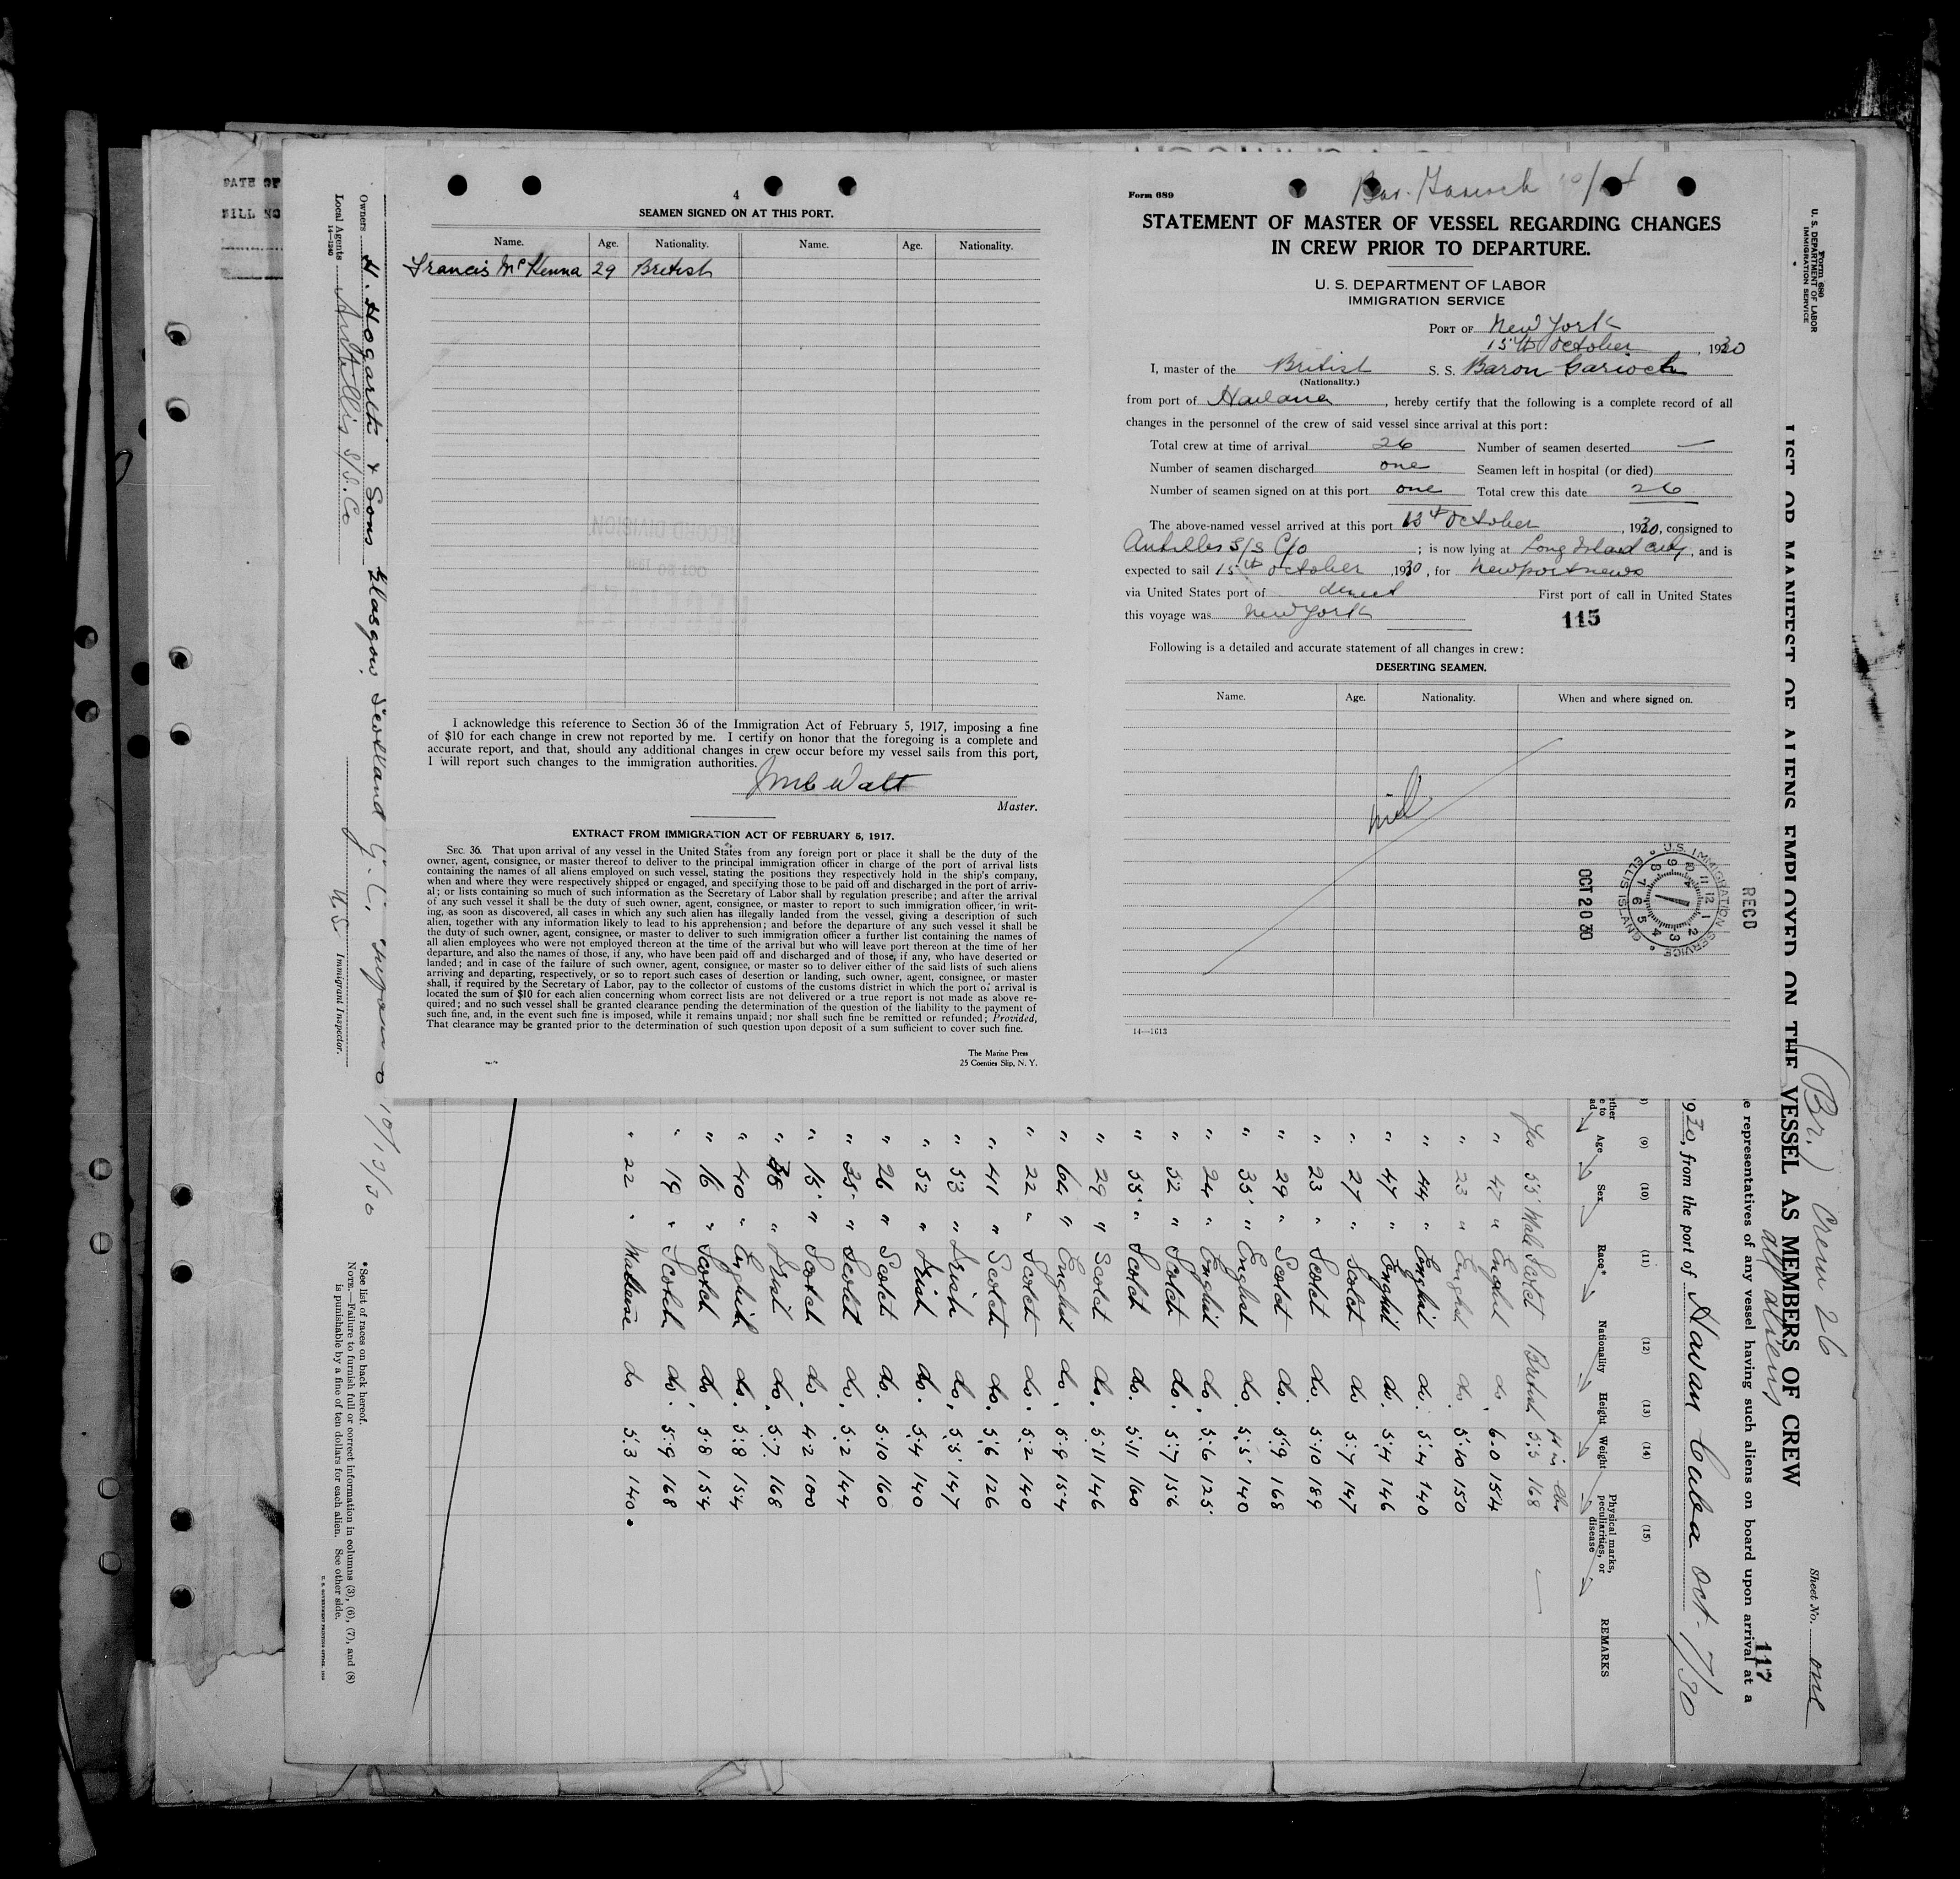 DATE OF
4
SEAMEN SIGNED ON AT THIS PORT.
Name. Age. Nationality. Name. Age. Nationality.
Francis McKenna 29 British
I acknowledge this reference to Section 36 of the Immigration Act of February 5, 1917, imposing a fine
of $10 for each change in crew not reported by me. I certify on honor that the foregoing is a complete and
accurate report, and that, should any additional changes in crew occur before my vessel sails from this port,
I will report such changes to the immigration authorities.
Master.
EXTRACT FROM IMMIGRATION ACT OF FEBRUARY 5, 1917.
SEC. 36. That upon arrival of any vessel in the United States from any foreign port or place it shall be the duty of the
owner, agent, consignee, or master thereof to deliver to the principal immigration officer in charge of the port of arrival lists
containing the names of all aliens employed on such vessel, stating the positions they respectively hold in the ship's company,
when and where they were respectively shipped or engaged, and specifying those to be paid off and discharged in the port of arriv-
al; or lists containing so much of such information as the Secretary of Labor shall by regulation prescribe; and after the arrival
of any such vessel it shall be the duty of such owner, agent, consignee, or master to report to such immigration officer, in writ-
ing, as soon as discovered, all cases in which any such alien has illegally landed from the vessel, giving a description of such
alien, together with any information likely to lead to his apprehension; and before the departure of any such vessel it shall be
the duty of such owner, agent, consignee, or master to deliver to such immigration officer a further list containing the names of
all alien employees who were not employed thereon at the time of the arrival but who will leave port thereon at the time of her
departure, and also the names of those, if any, who have been paid off and discharged and of those, if any, who have deserted or
landed; and in case of the failure of such owner, agent, consignee, or master so to deliver either of the said lists of such aliens
arriving and departing, respectively, or so to report such cases of desertion or landing, such owner, agent, consignee, or master
shall, if required by the Secretary of Labor, pay to the collector of customs of the customs district in which the port of arrival is
located the sum of $10 for each alien concerning whom correct lists are not delivered or a true report is not made as above re-
quired; and no such vessel shall be granted clearance pending the determination of the question of the liability to the payment of
such fine, and, in the event such fine is imposed, while it remains unpaid; nor shall such fine be remitted or refunded; Provided,
That clearance may be granted prior to the determination of such question upon deposit of a sum sufficient to cover such fine.
The Marine Press
25 Coenties Slip, N. Y.
Form 689
STATEMENT OF MASTER OF VESSEL REGARDING CHANGES
IN CREW PRIOR TO DEPARTURE.
U. S. DEPARTMENT OF LABOR
IMMIGRATION SERVICE
PORT OF New York
15th October, 1930
I, master of the British S. S. Baron Garioch
(Nationality.)
from port of Havana, hereby certify that the following is a complete record of all
changes in the personnel of the crew of said vessel since arrival at this port:
Total crew at time of arrival 26 Number of seamen deserted —
Number of seamen discharged one Seamen left in hospital (or died)
Number of seamen signed on at this port one Total crew this date 26
The above-named vessel arrived at this port 13th October, 1930, consigned to
Antilles S/S C/o; is now lying at Long Island City, and is
expected to sail 15th October, 1930, for Newportnews
via United States port of direct First port of call in United States
this voyage was New York
115
Following is a detailed and accurate statement of all changes in crew:
DESERTING SEAMEN.
Name. Age. Nationality. When and where signed on.
nil
14—1613
RECD
U.S. IMMIGRATION SERVICE ELLIS ISLAND
OCT 20 30
Form 680
U. S. DEPARTMENT OF LABOR
IMMIGRATION SERVICE
(Br.) Crew 26
all aliens
Sheet No. one
LIST OR MANIFEST OF ALIENS EMPLOYED ON THE VESSEL AS MEMBERS OF CREW
117
e representatives of any vessel having such aliens on board upon arrival at a
930, from the port of Havan Cuba Oct. 7/30
(9) (10) (11) (12) (13) (14) (15)
Age Sex Race* Nationality Height Weight Physical marks, peculiarities, or disease REMARKS
Yes 53 Male Scotch British 5.5 168 —
" 47 " English do. 6.0 154
" 23 " English do. 5.10 150
" 44 " English do. 5.4 140
" 47 " English do. 5.4 146
" 27 " Scotch do 5.7 147
" 23 " Scotch do. 5.10 189
" 29 " Scotch do. 5.9 168
" 35 " English do. 5.5 140
" 24 " English do. 5.6 125
" 52 " Scotch do. 5.7 156
" 55 " Scotch do. 5.11 160
" 29 " Scotch do. 5.11 146
" 64 " English do. 5.9 154
" 22 " Scotch do. 5.2 140
" 41 " Scotch do. 5.6 126
" 53 " Irish do. 5.5 147
" 52 " Irish do. 5.4 140
" 26 " Scotch do. 5.10 160
" 35 " Scotch do. 5.2 144
" 15 " Scotch do. 4.2 100
" 38 " Irish do. 5.7 168
" 40 " English do. 5.8 154
" 16 " Scotch do 5.8 154
" 19 " Scotch do. 5.9 168
" 22 " Maltese do 5.3 140
Owners H. Hogarth & Sons Glasgow Scotland
Local Agents Antilles S/S. Co
14—1240
10/13/30
Immigrant Inspector.
*See list of races on back hereof.
NOTE.—Failure to furnish full or correct information in columns (3), (6), (7), and (8)
is punishable by a fine of ten dollars for each alien. See other side.